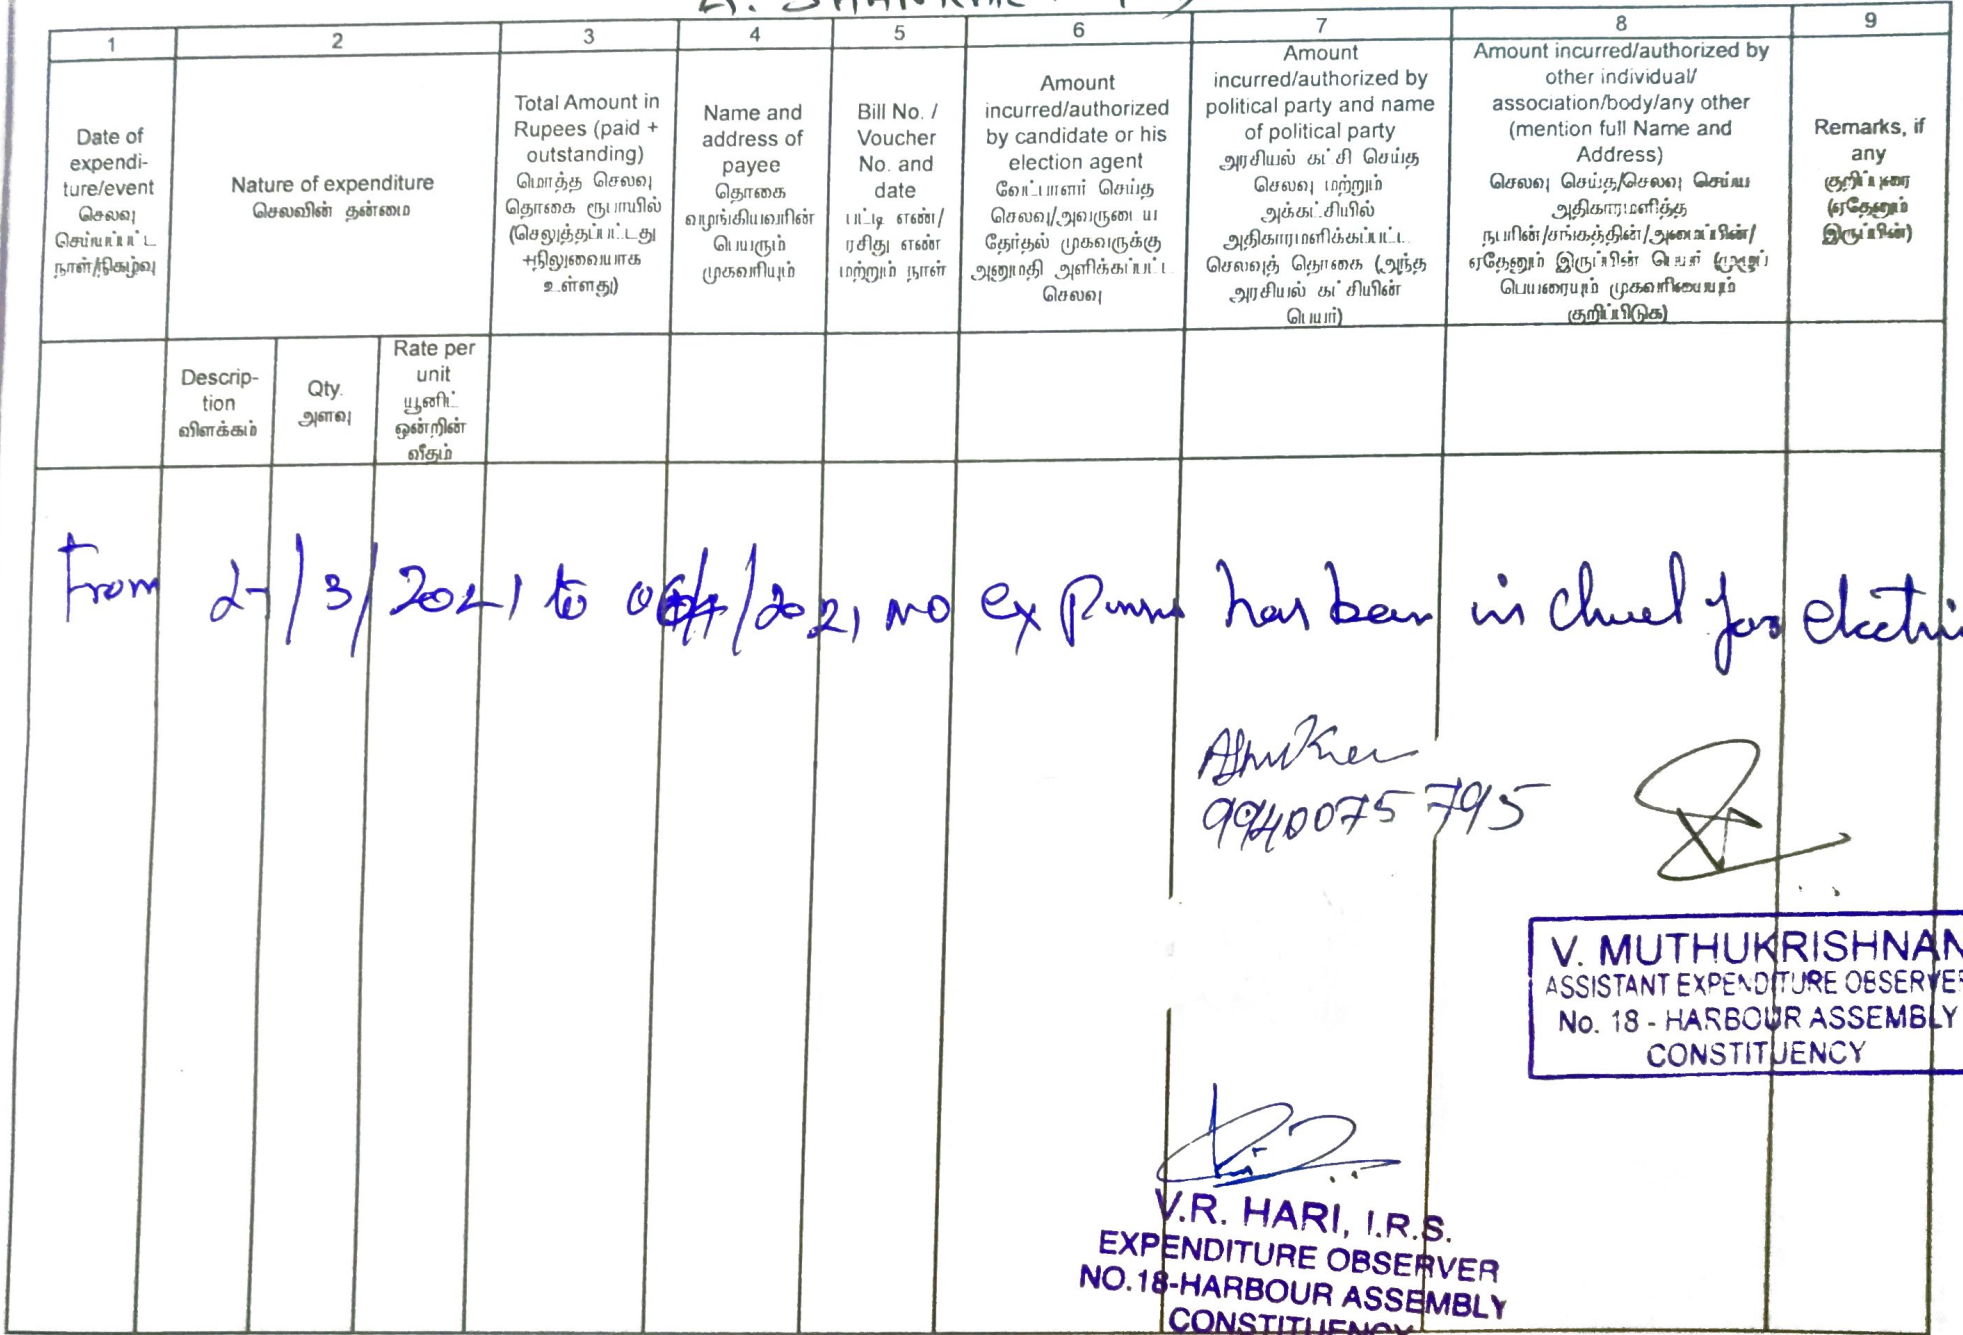 A. SHANKAR
1 2 3 4 5 6 7 8 9
Date of
expendi-
ture/event
செலவு
செய்யப்பட்ட
நாள்/நிகழ்வு
Nature of expenditure
செலவின் தன்மை
Total Amount in
Rupees (paid +
outstanding)
மொத்த செலவு
தொகை ரூபாயில்
(செலுத்தப்பட்டது
+நிலுவையாக
உள்ளது)
Name and
address of
payee
தொகை
வழங்கியவரின்
பெயரும்
முகவரியும்
Bill No. /
Voucher
No. and
date
பட்டி எண்/
ரசிது எண்
மற்றும் நாள்
Amount
incurred/authorized
by candidate or his
election agent
வேட்பாளர் செய்த
செலவு/அவருடைய
தேர்தல் முகவருக்கு
அனுமதி அளிக்கப்பட்ட
செலவு
Amount
incurred/authorized by
political party and name
of political party
அரசியல் கட்சி செய்த
செலவு மற்றும்
அக்கட்சியில்
அதிகாரமளிக்கப்பட்ட
செலவுத் தொகை (அந்த
அரசியல் கட்சியின்
பெயர்)
Amount incurred/authorized by
other individual/
association/body/any other
(mention full Name and
Address)
செலவு செய்த/செலவு செய்ய
அதிகாரமளித்த
நபரின்/சங்கத்தின்/அமைப்பின்/
ஏதேனும் இருப்பின் பெயர் (முழுப்
பெயரையும் முகவரியையும்
குறிப்பிடுக)
Remarks, if
any
குறிப்புரை
(ஏதேனும்
இருப்பின்)
Descrip-
tion
விளக்கம்
Qty.
அளவு
Rate per
unit
யூனிட்
ஒன்றின்
வீதம்
From /3/2021 to /2021 no expense has been for
9940075795
V. MUTHUKRISHNAN
ASSISTANT EXPENDITURE OBSERVER
No. 18 - HARBOUR ASSEMBLY
CONSTITUENCY
V.R. HARI, I.R.S.
EXPENDITURE OBSERVER
NO.18-HARBOUR ASSEMBLY
CONSTITUENCY